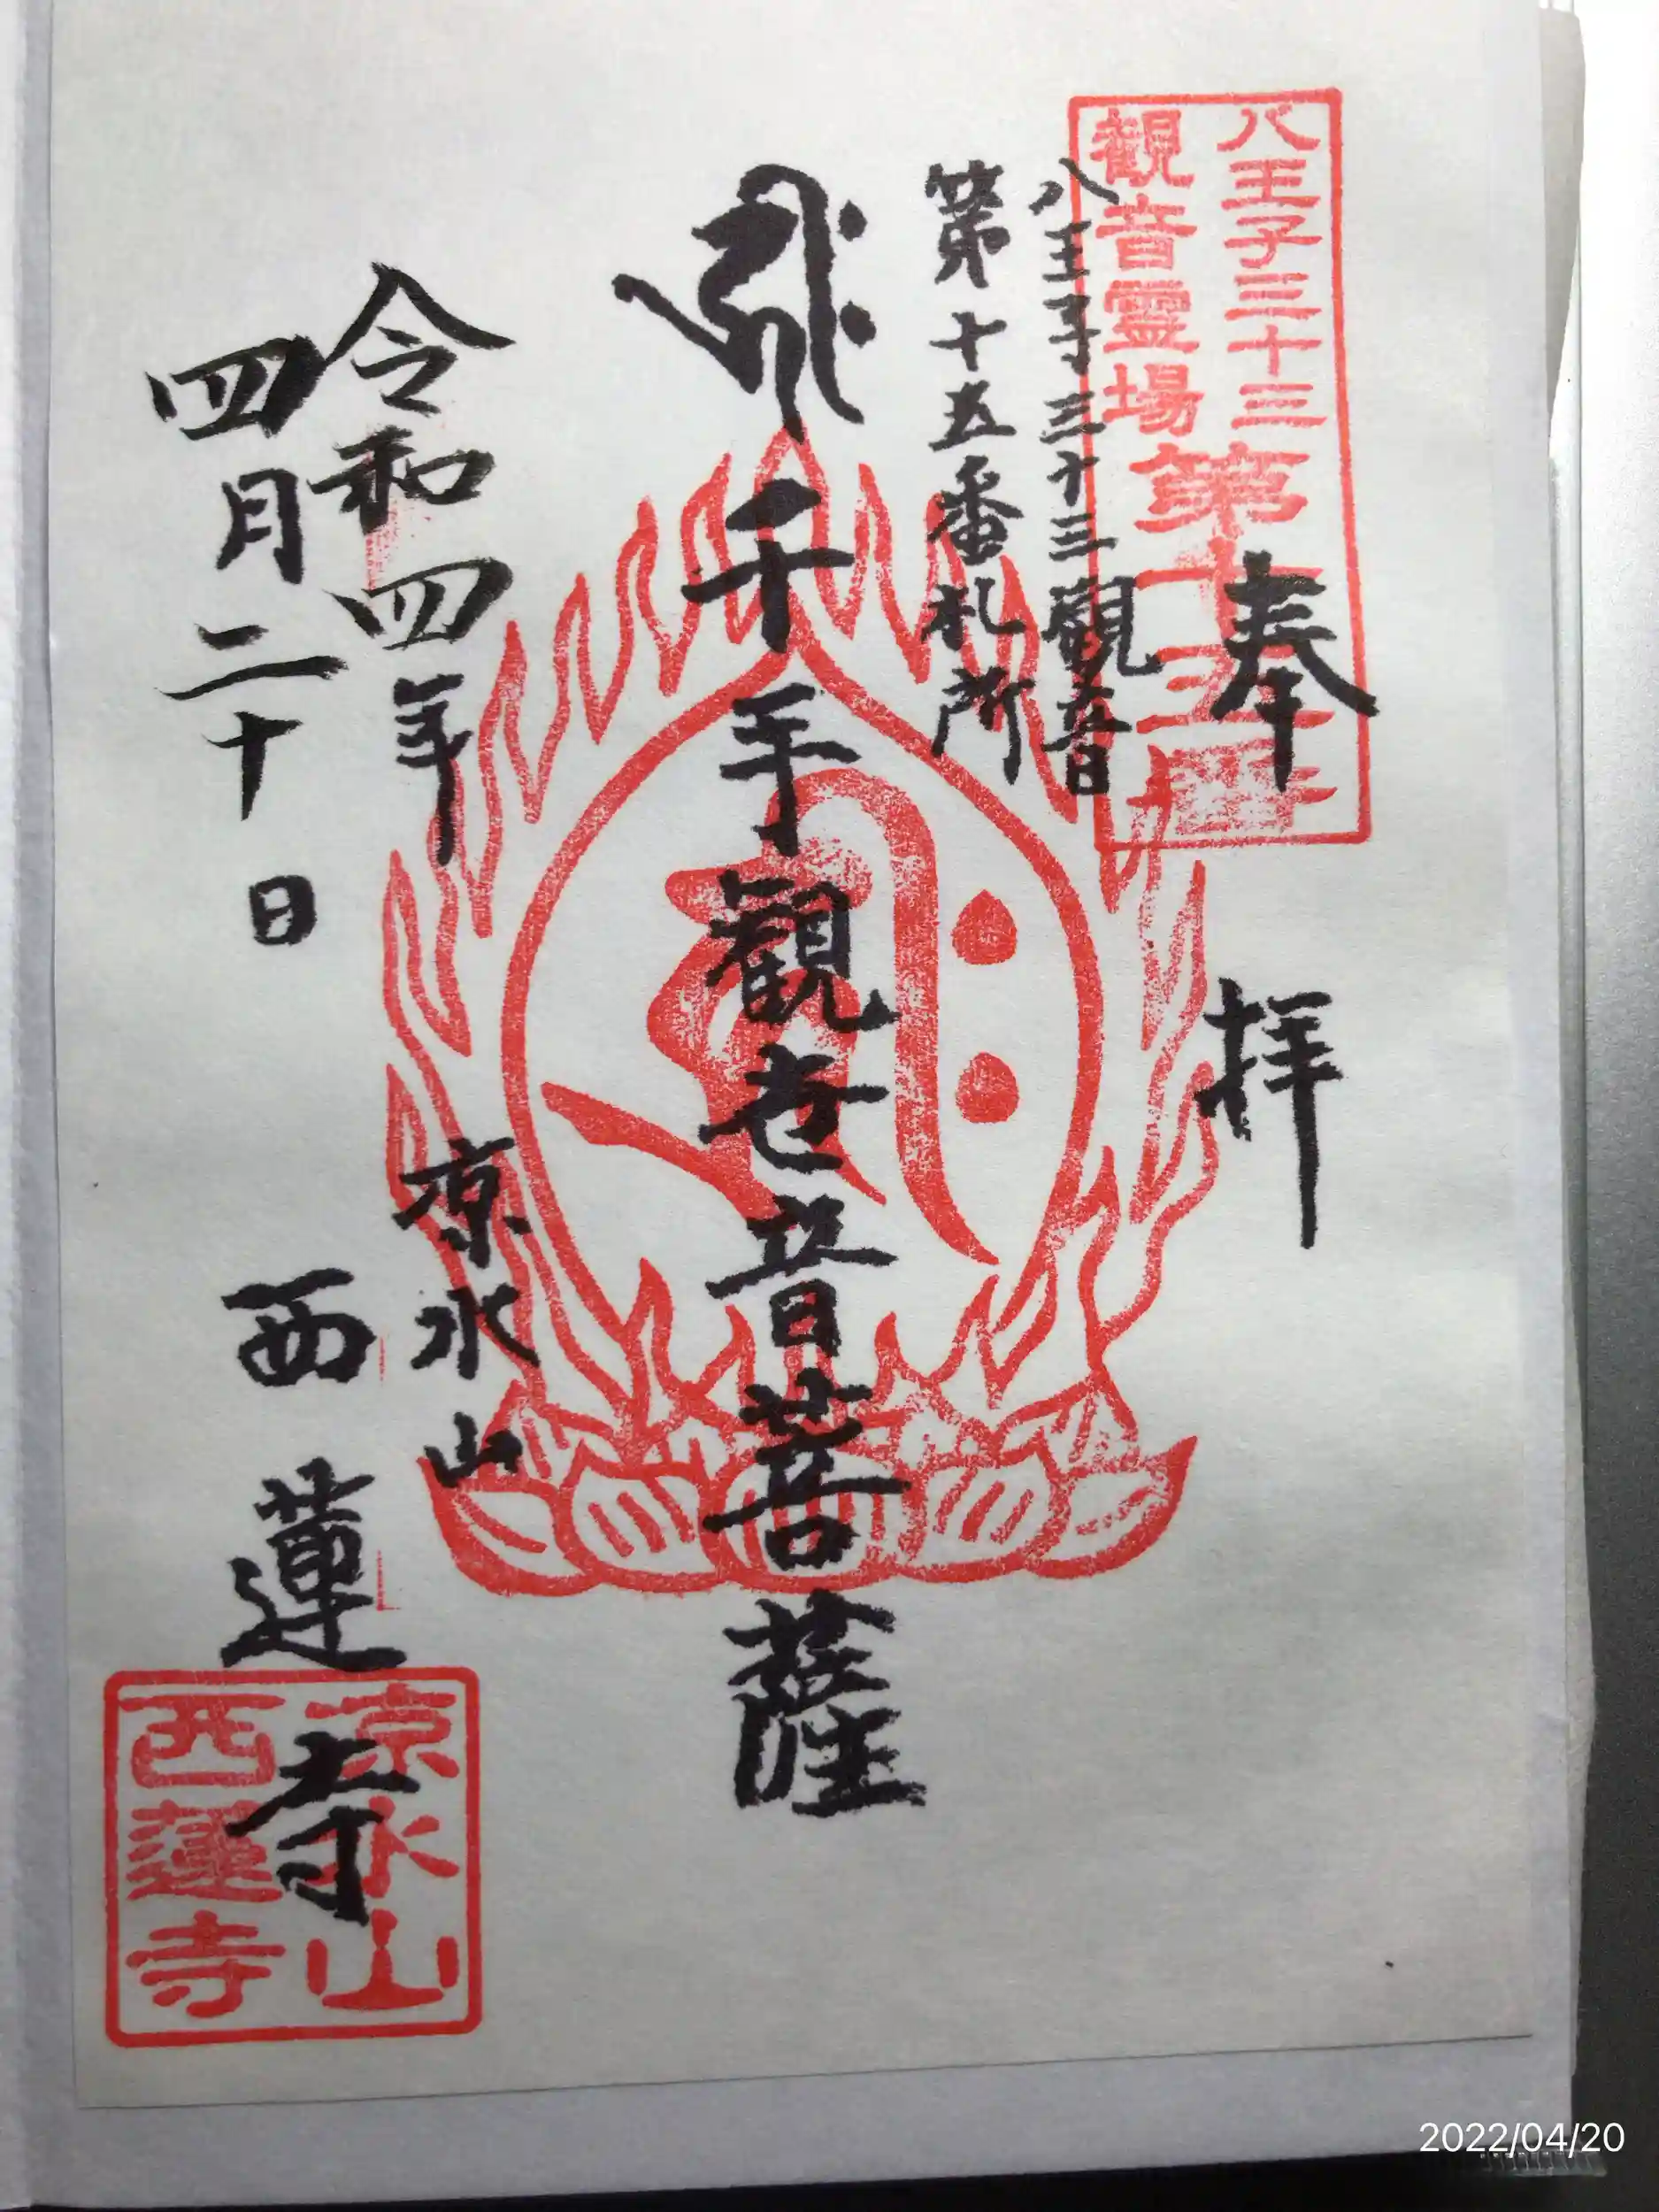 八王子三十三
観音霊場
第十五番
奉拝
八王子三十三観音
第十五番札所
千手観世音菩薩
令和四年
四月二十日
京水山
西蓮寺
京水山
西蓮寺
2022/04/20